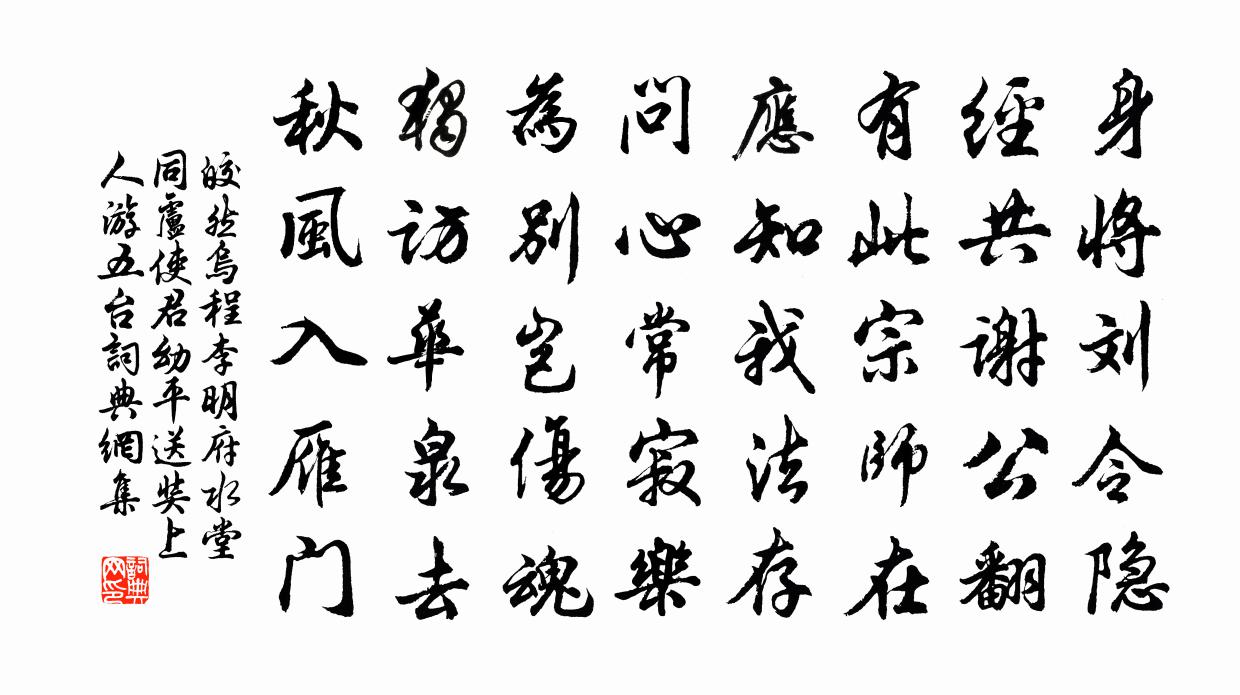 身將刘令隐
經共謝公翻
有此宗師在
應知我法存
問心常寂樂
為別岂傷魂
獨訪華泉去
秋風入雁门
皎然烏程李明府水堂
同盧使君幼平送奘上
人游五台詞典網集
詞典
网印